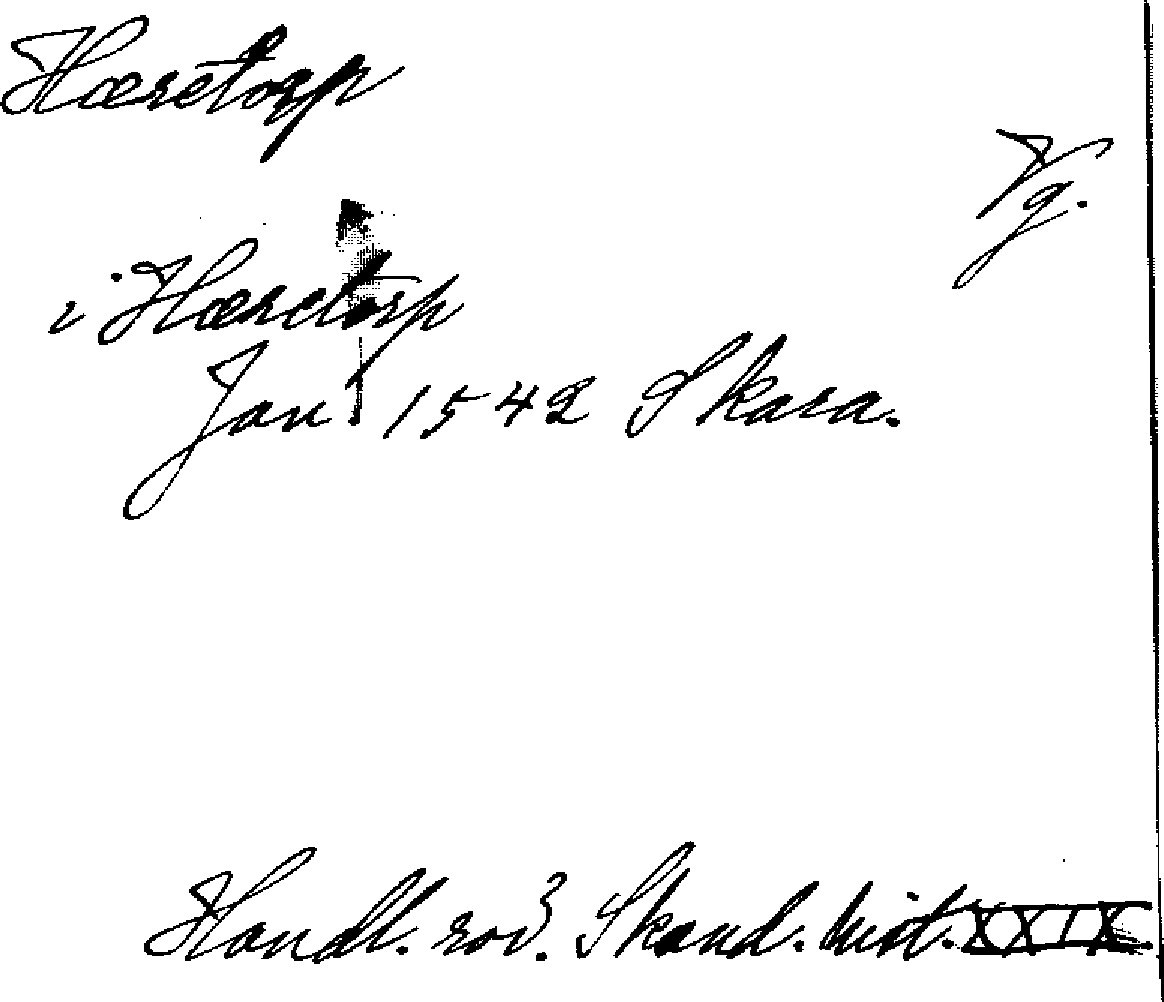 Hæretorp
Vg.
i Hæretorp
Jan. 1542 Skara.
Handl. rör. Skand. hist. XXIX.